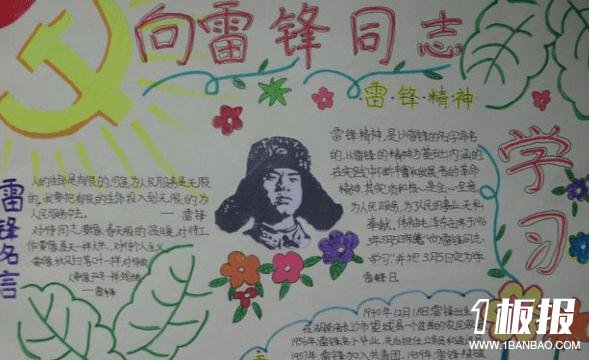 向雷锋同志
学习
·雷·锋·精·神·
雷锋精神,是以雷锋的名字命名
的,以雷锋的精神为基础内涵的
在实践中不断丰富和发展着的革命
精神,其实质和核心是全心全意
为人民服务,为人民的事业无私
奉献。
学习”,并把3月5日定为学
雷锋日。
雷锋名言
人的生命是有限的,可是为人民服务是无限
的,我要把有限的生命投入到无限的为
人民服务中去。
——雷锋
对待同志要像春天般的温暖,对待工
作要像夏天一样火热,对待个人主义
要像秋风扫落叶一样,对待敌
人要像严冬一样
——雷锋
1940年12月18日雷锋出生
在湖南省长沙市望城县一个贫困的农民家
1956年,雷锋小学毕业,先后担任
1957年,雷锋加入共青团,1958年,雷锋
1板报
WWW.1BANBAO.COM